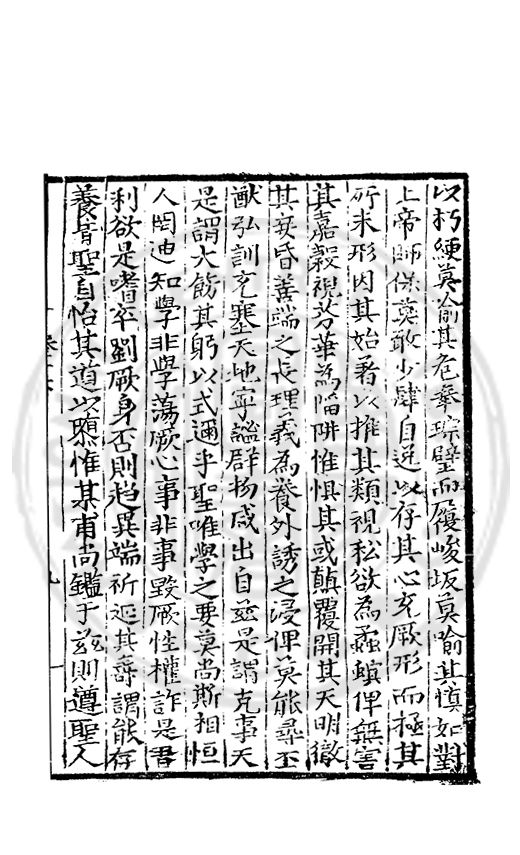 以朽綆莫喻其危奉琮璧而履峻坂莫喻其慎如對
上帝師保莫敢少肆自逸以存其心充厥形而極其
所未形因其始著以擴其類視私欲為蟊螟俾無害
其嘉穀視芬華為陷阱惟懼其或顛覆開其天明徹
其妄昏善端之長理義為養外誘之浸俾莫能尋丕
猷弘訓充塞天地寧謐群物咸出自茲是謂克事天
是謂大飭其躬以式邇乎聖唯學之要莫尚斯相恒
人罔迪知學非學蕩厥心事非事毀厥性權詐是習
利欲是嗜卒劉厥身否則趨異端祈延其壽謂能存
養背聖自怡其道以隳惟某甫尚鑑于茲則遵聖人